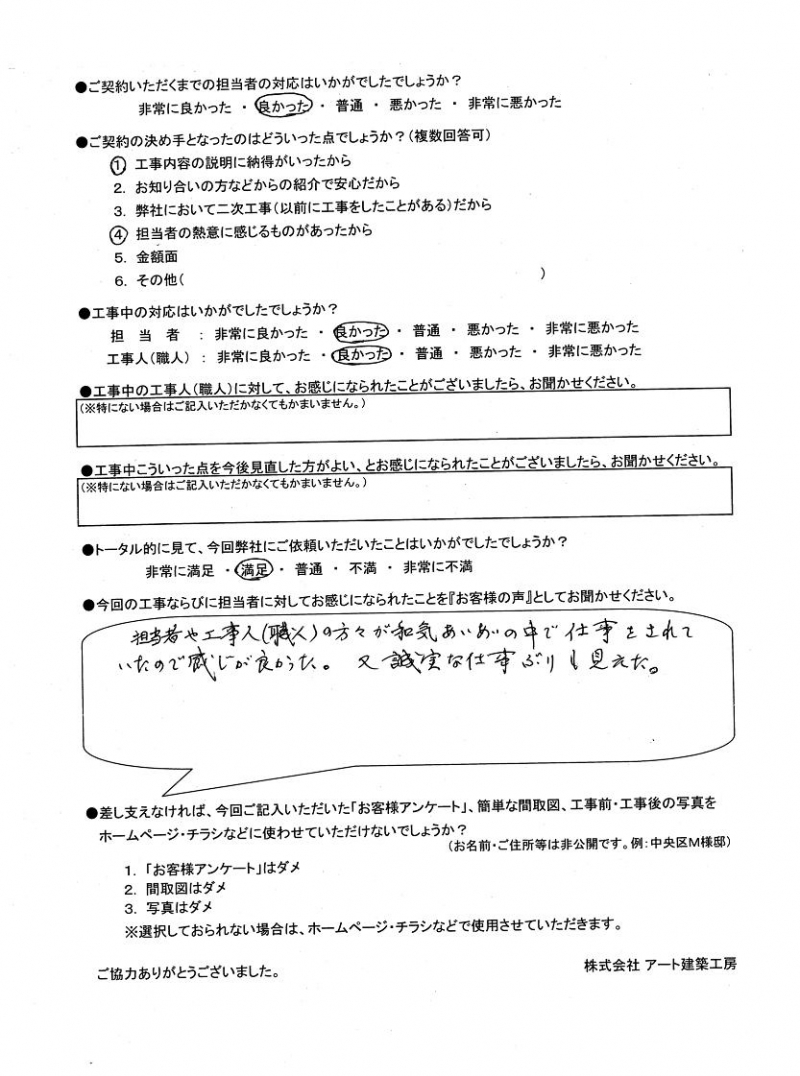 ●ご契約いただくまでの担当者の対応はいかがでしたでしょうか？
非常に良かった ・ 良かった ・ 普通 ・ 悪かった ・ 非常に悪かった
●ご契約の決め手となったのはどういった点でしょうか？（複数回答可）
1. 工事内容の説明に納得がいったから
2. お知り合いの方などからの紹介で安心だから
3. 弊社において二次工事（以前に工事をしたことがある）だから
4. 担当者の熱意に感じるものがあったから
5. 金額面
6. その他（ ）
●工事中の対応はいかがでしたでしょうか？
担 当 者 ： 非常に良かった ・ 良かった ・ 普通 ・ 悪かった ・ 非常に悪かった
工事人（職人） ： 非常に良かった ・ 良かった ・ 普通 ・ 悪かった ・ 非常に悪かった
●工事中の工事人（職人）に対して、お感じになられたことがございましたら、お聞かせください。
（※特にない場合はご記入いただかなくてもかまいません。）
●工事中こういった点を今後見直した方がよい、とお感じになられたことがございましたら、お聞かせください。
（※特にない場合はご記入いただかなくてもかまいません。）
●トータル的に見て、今回弊社にご依頼いただいたことはいかがでしたでしょうか？
非常に満足 ・ 満足 ・ 普通 ・ 不満 ・ 非常に不満
●今回の工事ならびに担当者に対してお感じになられたことを『お客様の声』としてお聞かせください。
担当者や工事人（職人）の方々が和気あいあいの中で仕事をされて
いたので感じが良かった。 又誠実な仕事ぶりも見えた。
●差し支えなければ、今回ご記入いただいた「お客様アンケート」、簡単な間取図、工事前・工事後の写真を
ホームページ・チラシなどに使わせていただけないでしょうか？
（お名前・ご住所等は非公開です。例：中央区M様邸）
1. 「お客様アンケート」はダメ
2. 間取図はダメ
3. 写真はダメ
※選択しておられない場合は、ホームページ・チラシなどで使用させていただきます。
ご協力ありがとうございました。
株式会社 アート建築工房